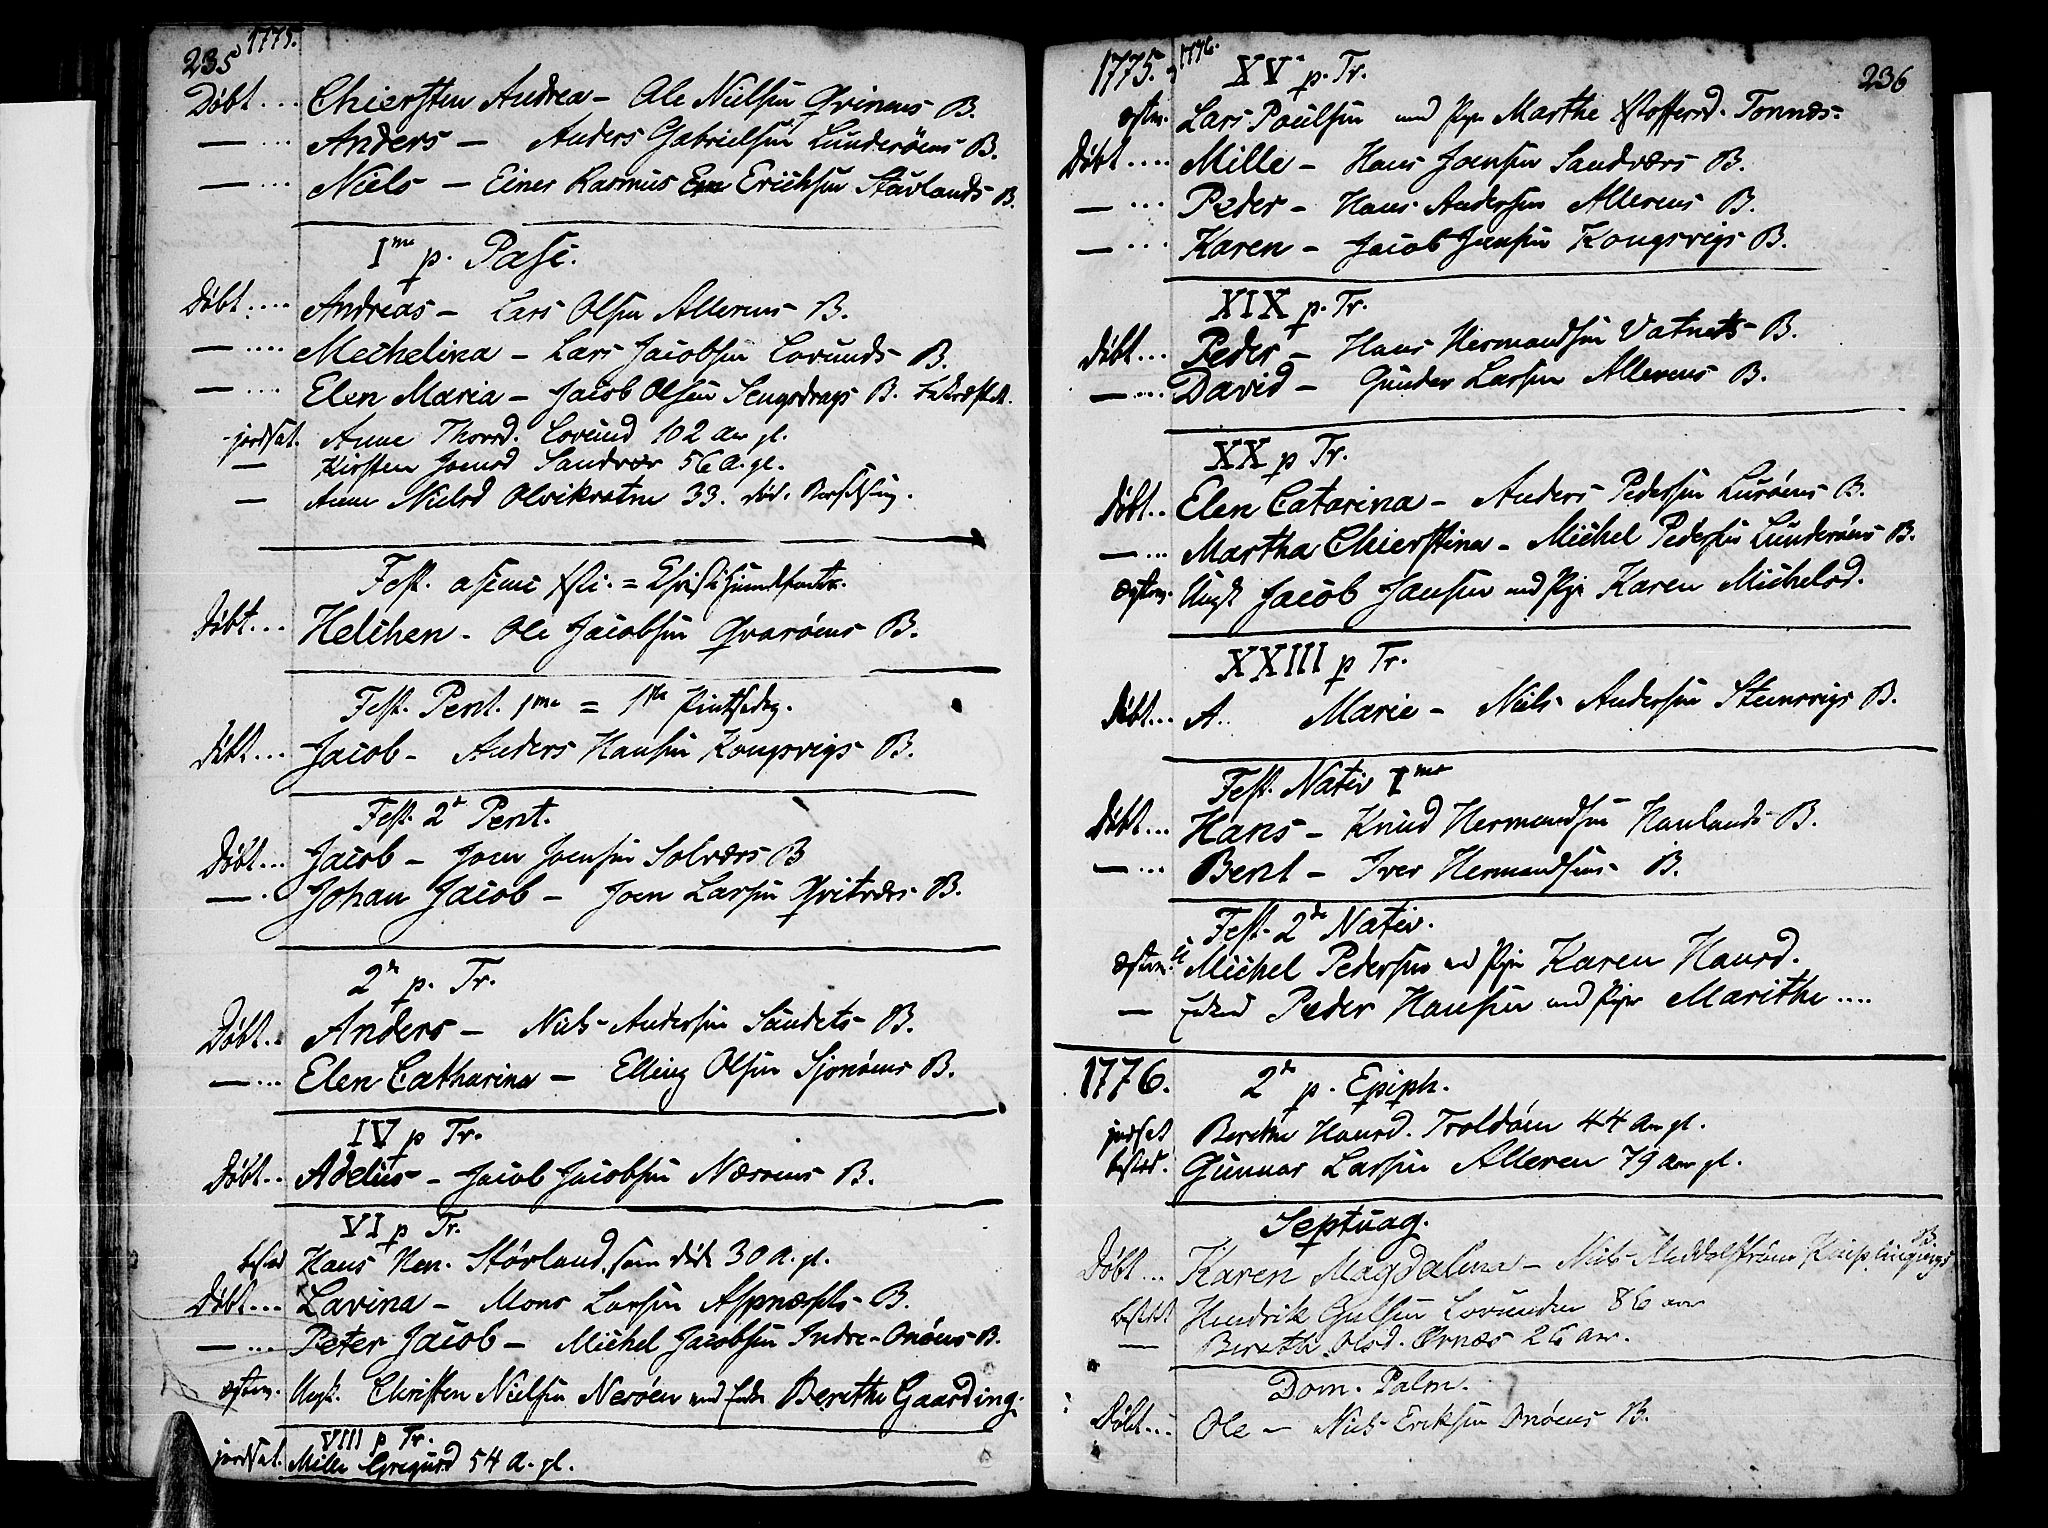 235 1775.
Døbt... Chiersten Andrea - Ole Nielsen Qvinæs B.
— ... Anders — Anders Gabrielsen Lunderöens B.
— ... Niels — Einer Rasmus Erichsen Støvlands B.
I ma p. Pasc.
Døbt.... Andreas - Lars Olsen Allerens B.
— .... Mechelina - Lars Jacobsen Lovunds B.
— ... Elen Maria - Jacob Olsen Sengsdrags B.
jordsat. Anne Thorsd. Lovund 102 aar gl.
— Kirsten Joensd Sandvær 56 a. gl.
— Anne Nielsd Olvikvatne 33. død i Barselseng.
Fest. ascens Xsti. = Christi himmelfartz.
Døbt... Helchen - Ole Jacobsen Qvarøens B.
Fest. Pent. 1ma = 1ste Pintsedag.
Døbt... Jacob - Anders Hansen Kongsvigs B.
Fest. 2a Pent.
Døbt... Jacob - Joen Joensen Solværs B
— . Johan Jacob - Joen Larsen Qvitværs B.
2a p. Tr.
Døbt.. Anders - Niels Andersen Sandets B.
— ... Elen Catharina — Elling Olsen Sjonøens B.
IV p Tr.
Døbt.. Adelus - Jacob Jacobsen Næsøens B.
VI p Tr.
Hans Hen. Støvland, som døde 30 a. gl.
Døbt... Lavina - Mons Larsen Aspnæsets B.
— ... Peter Jacob - Michel Jacobsen Indre-Onøens B.
Ungk. Christen Nielsen Nesöen med Enke Berethe Gaarding.
VIII p Tr.
jordsat. Mille Gregusd 54 a. gl.
1775. 1776. XV p. Tr. 236
Lars Poulsen med Pige Marthe Xstoffersd. Tonnæs-
Døbt.... Mille - Hans Joensen Sandværs B.
— ... Peder - Hans Andersen Allerens B.
— ... Karen - Jacob Jensen Kongsvigs B.
XIX p. Tr.
Døbt... Peder - Hans Hermandsen Vatnets B.
— ... David - Gunder Larsen Allerens B.
XX p Tr.
Døbt.. Elen Catarina - Anders Pedersen Lurøens B.
— ... Martha Chierstina - Michel Pedersen Lunderøens B.
Ungk Jacob Jansen med Pige Karen Michelsd.
XXIII p Tr.
Døbt... A.. Marie - Niels Andersen Stensvigs B.
Fest. Nativ I ma
Døbt... Hans - Knud Hermandsen Haulands B.
— ... Bent - Iver Hermandsens B.
Fest. 2da Nativ.
Michel Pedersen med Pige Karen Hansd.
— Peder Hansen med Pige Marithe ....
1776. 2da p. Epiph.
jordsat Berethe Hansd. Troldøen 44 aar gl.
Gunnar Larsen Alleren 79 aar gl.
Septuag.
Døbt... Karen Magdalena - Niels B.
Hendrik Lovunden 86 aar
— Bereth Olsd. Ørnæs 26 aar.
Dom. Palm.
Døbt... Ole - Niels Eriksen Onøens B.